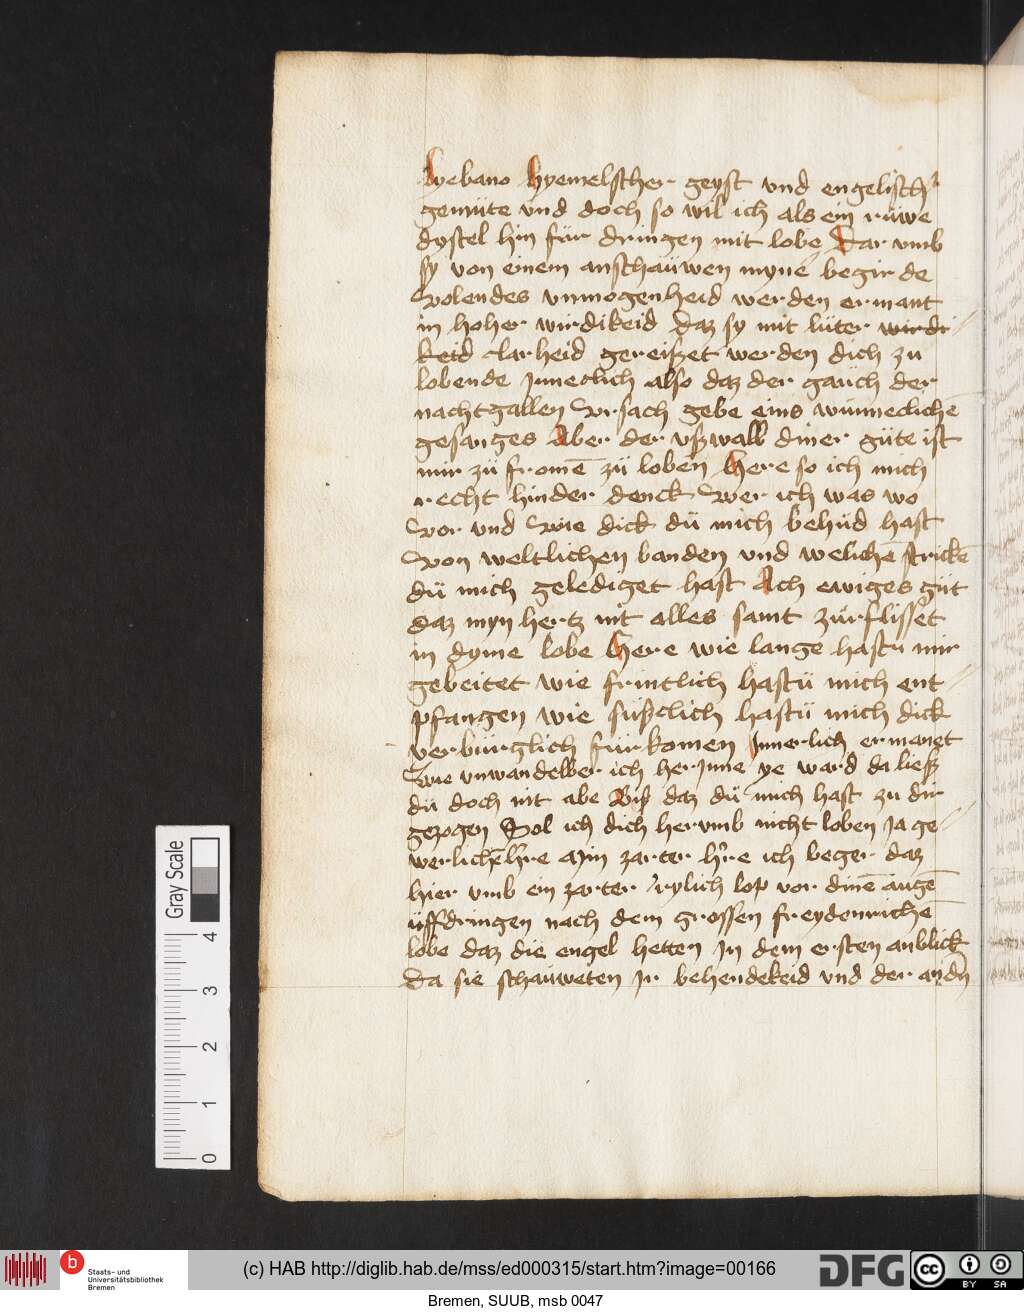 hyemelscher geyst vnd engelisch
gemüte vnd doch so wil ich als ein rüwe
dystel hin für dringen mit lobe Dar vmb
sy von einem anschaüwen myne begirde
volendes vnmogenheid werden ermant
in hoher wirdikeid daz sy mit lüter wirdi
keid clarheid gereißet werden dich zu
lobende Jnneclich also daz der gaüch der
nachtgallen vrsach gebe eins wünneclichē
gesanges Aber der vßwall diner güte ist
mir zü fromē zü loben Here so ich mich
recht hinder denck wer ich was wo
vor vnd wie dick dü mich behüd hast
von weltlichen banden vnd welichē strickē
dü mich gelediget hast Ach ewiges güt
daz myn hertz nit alles samt zürflisset
in dyme lobe Here wie lange hastu mir
gebeitet wie frintlich hastü mich ent
pfangen wie süßclich hastü mich dick
verbürglich fürkomen Jnnerlich ermanet
wie vnwandelber ich her Jnne ye ward da ließ
dü doch nit abe Biß daz dü mich hast zu dir
gezogen Sol ich dich hervmb nicht loben Ja ge
werlichē h're Min zarter h're ich beger daz
hier vmb ein zarter rylich lop vor dinē augē
üffdringen nach dem grossen freydenrichē
lobe daz die engel hetten Jn dem ersten anblick
Da sie schaüweten Jr behendekeid vnd der andn̄
Gray Scale
4
3
2
1
0
b
Staats- und
Universitätsbibliothek
Bremen
(c) HAB http://diglib.hab.de/mss/ed000315/start.htm?image=00166
DFG
cc
BY SA
Bremen, SUUB, msb 0047